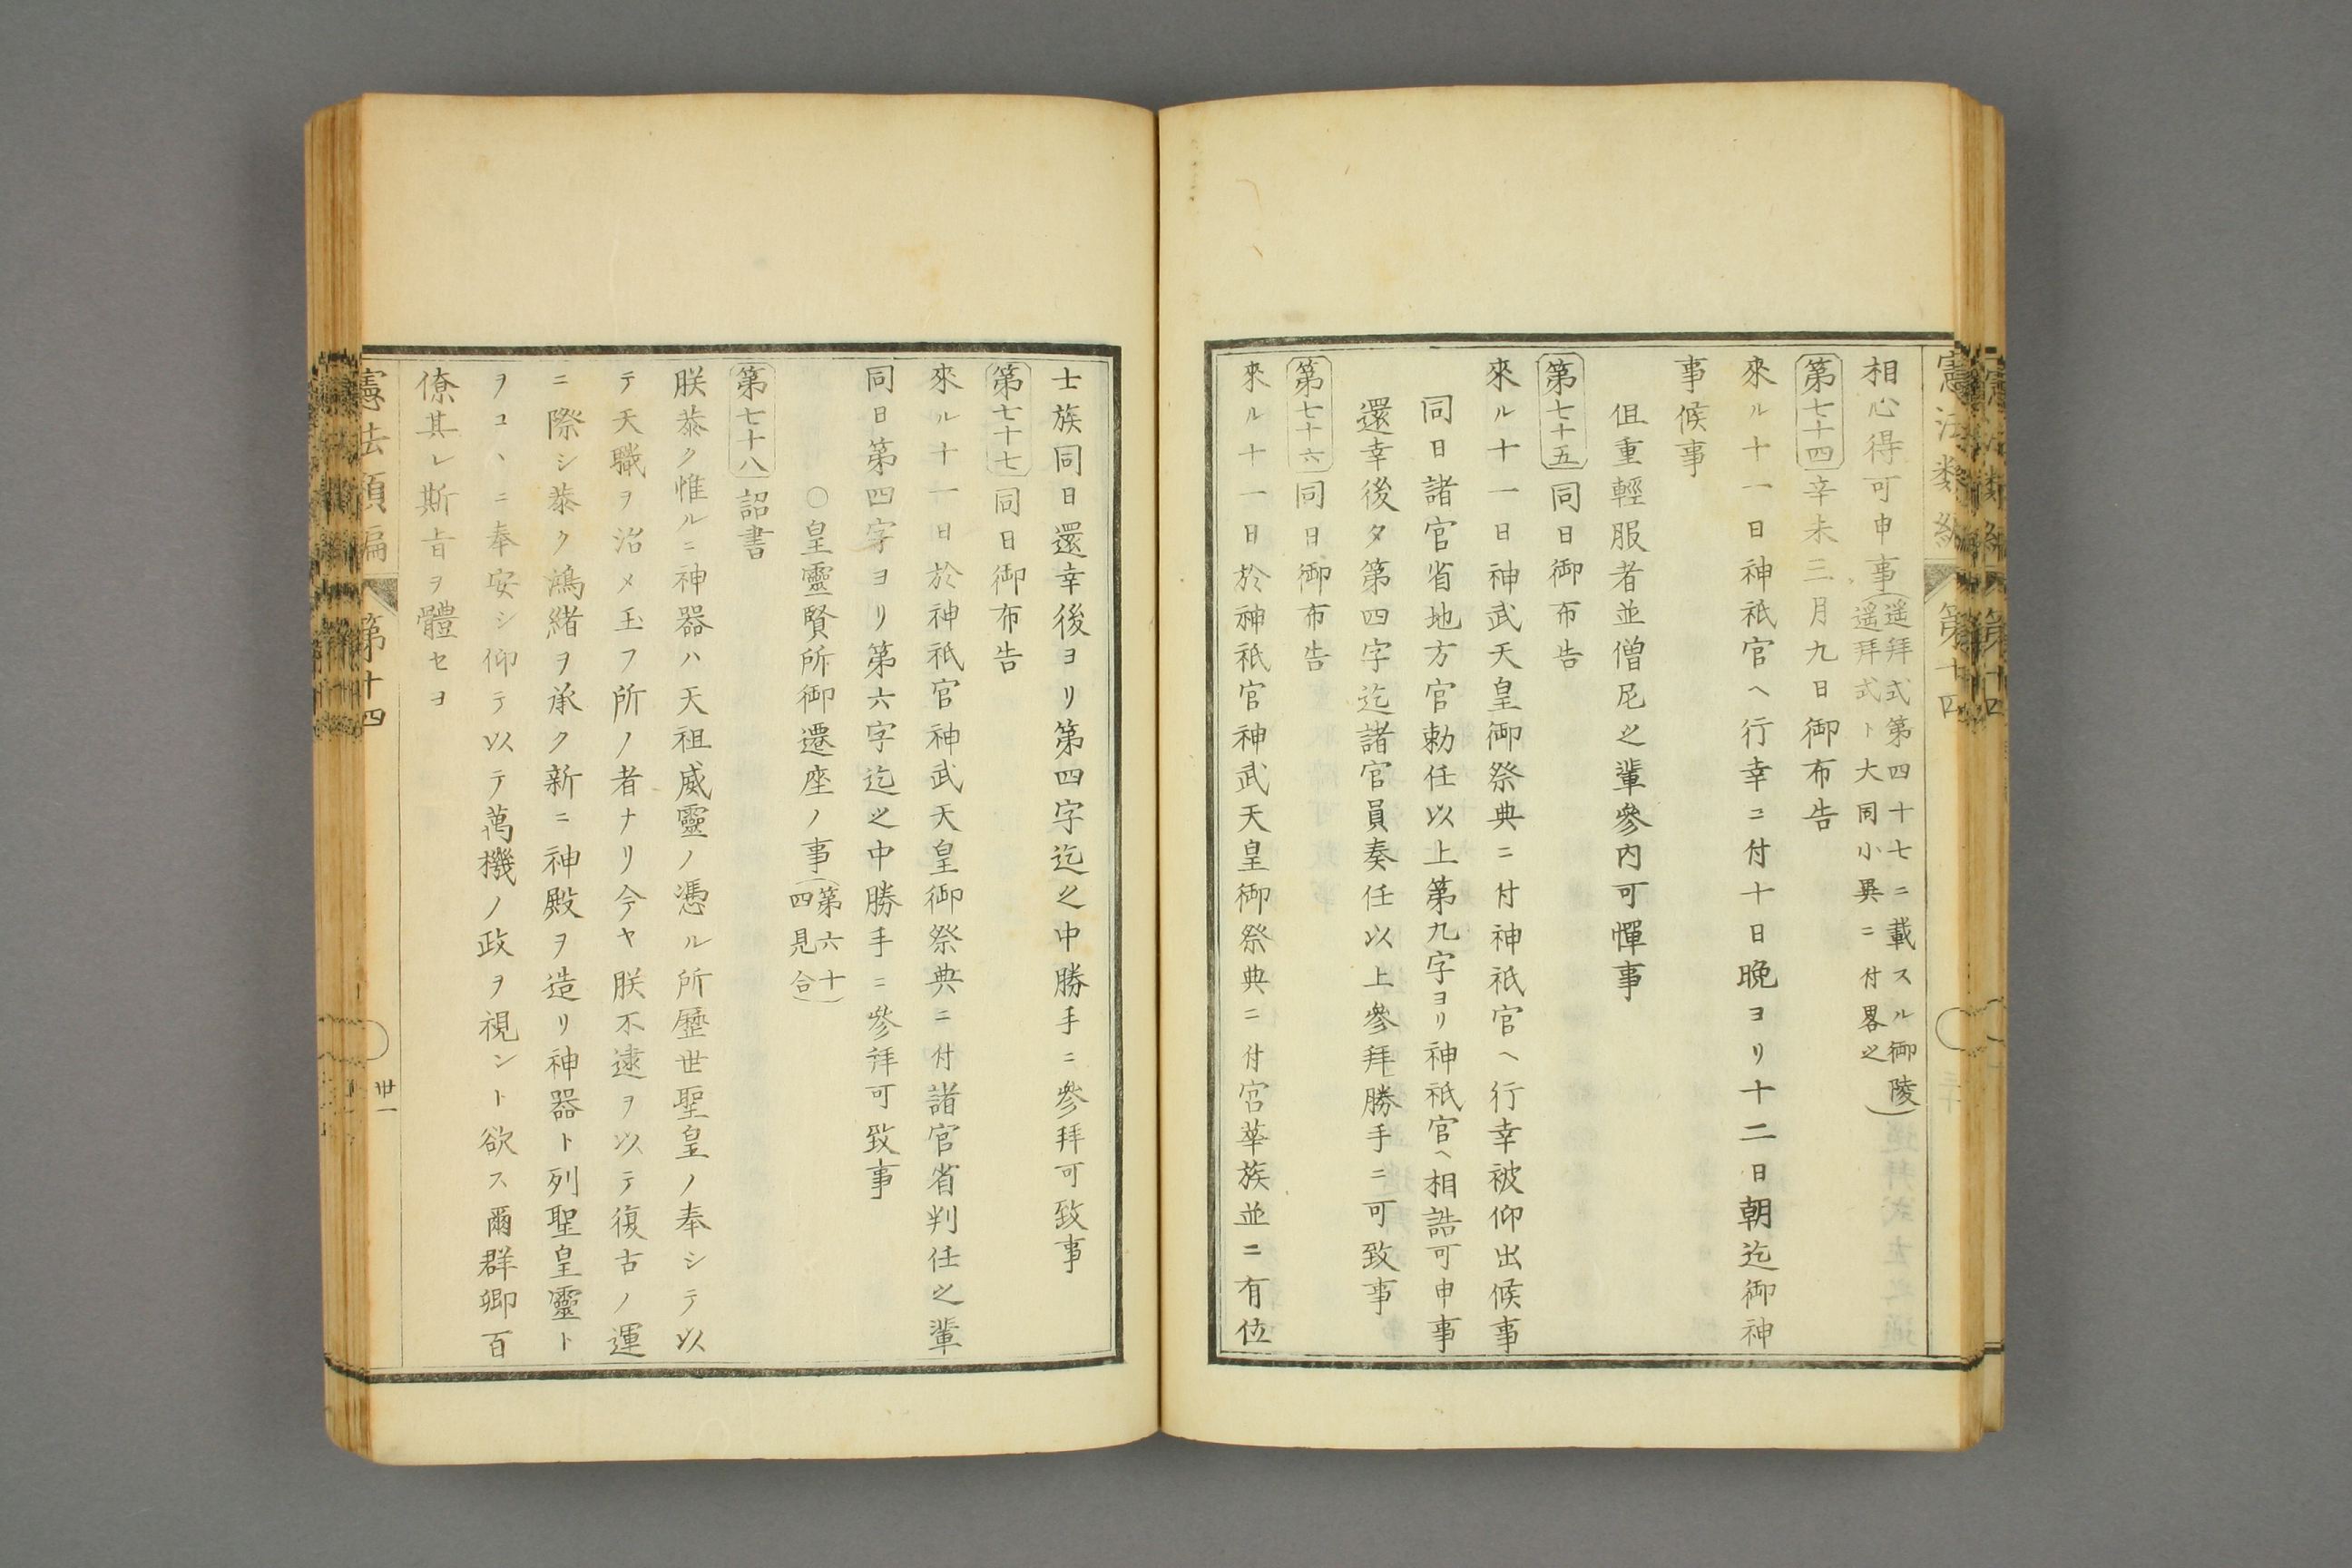 相心得可申事(遥拜式第四十七ニ載スル御陵
遥拜式ト大同小異ニ付畧之)
第七十四辛未三月九日御布告
來ル十一日神祇官ヘ行幸ニ付十日晚ヨリ十二日朝迄御神
事候事
但重輕服者並僧尼之輩參內可憚事
第七十五同日御布告
來ル十一日神武天皇御祭典ニ付神祇官ヘ行幸被仰出候事
同日諸官省地方官勅任以上第九字ヨリ神祇官ヘ相詣可申事
還幸後夕第四字迄諸官員奏任以上參拜勝手ニ可致事
第七十六同日御布告
來ル十一日於神祇官神武天皇御祭典ニ付宮華族並ニ有位
士族同日還幸後ヨリ第四字迄之中勝手ニ參拜可致事
第七十七同日御布告
來ル十一日於神祇官神武天皇御祭典ニ付諸官省判任之輩
同日第四字ヨリ第六字迄之中勝手ニ參拜可致事
○皇靈賢所御遷座ノ事(第六十
四見合)
第七十八詔書
朕恭ク惟ルニ神器ハ天祖威靈ノ憑ル所歷世聖皇ノ奉シテ以
テ天職ヲ治メ玉フ所ノ者ナリ今ヤ朕不逮ヲ以テ復古ノ運
ニ際シ恭ク鴻緒ヲ承ク新ニ神殿ヲ造リ神器ト列聖皇靈ト
ヲコヽニ奉安シ仰テ以テ萬機ノ政ヲ視ント欲ス爾群卿百
僚其レ斯旨ヲ體セヨ
第十四
卅一